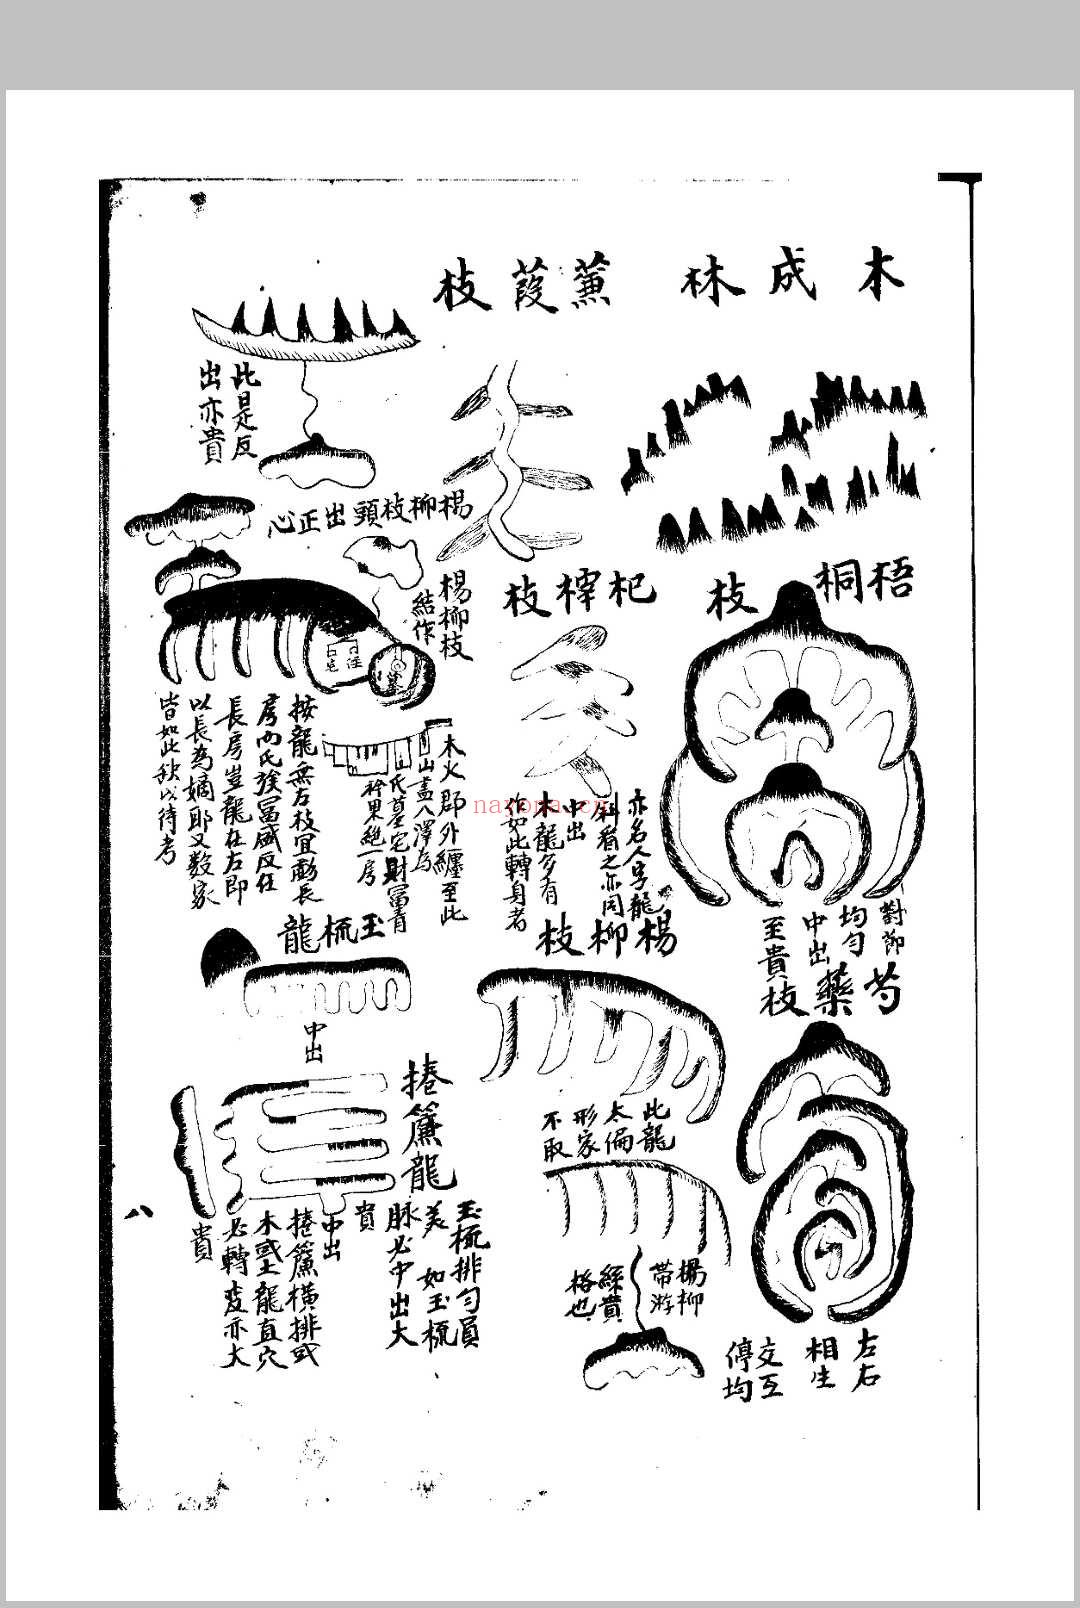 木成林
蒹葭枝
梧桐枝
對節
均勻
中出
至貴
芍藥枝
左右
相生
交互
停均
杞梓枝
亦名人字龍
斜看之亦同
中出
木龍多有
作如此轉身者
楊柳枝
此龍
太偏
形家
不取
楊柳
帶游
絲貴
格也
此是反
出亦貴
楊柳枝頭出正心
楊柳枝
結作
木火郡外纏至此
山盡入澤為
氏墓宅財富青
衿果絕一房
按龍無左枝宜
長房豈龍在左即
以長為嫡耶又數家
皆如此秋以待考
玉梳龍
中出
捲簾龍
玉梳排勻員
美 如玉梳
脈必中出大
貴
中出
捲簾橫排或
木或土龍直穴
必轉變亦大
貴
八
nayona.cn